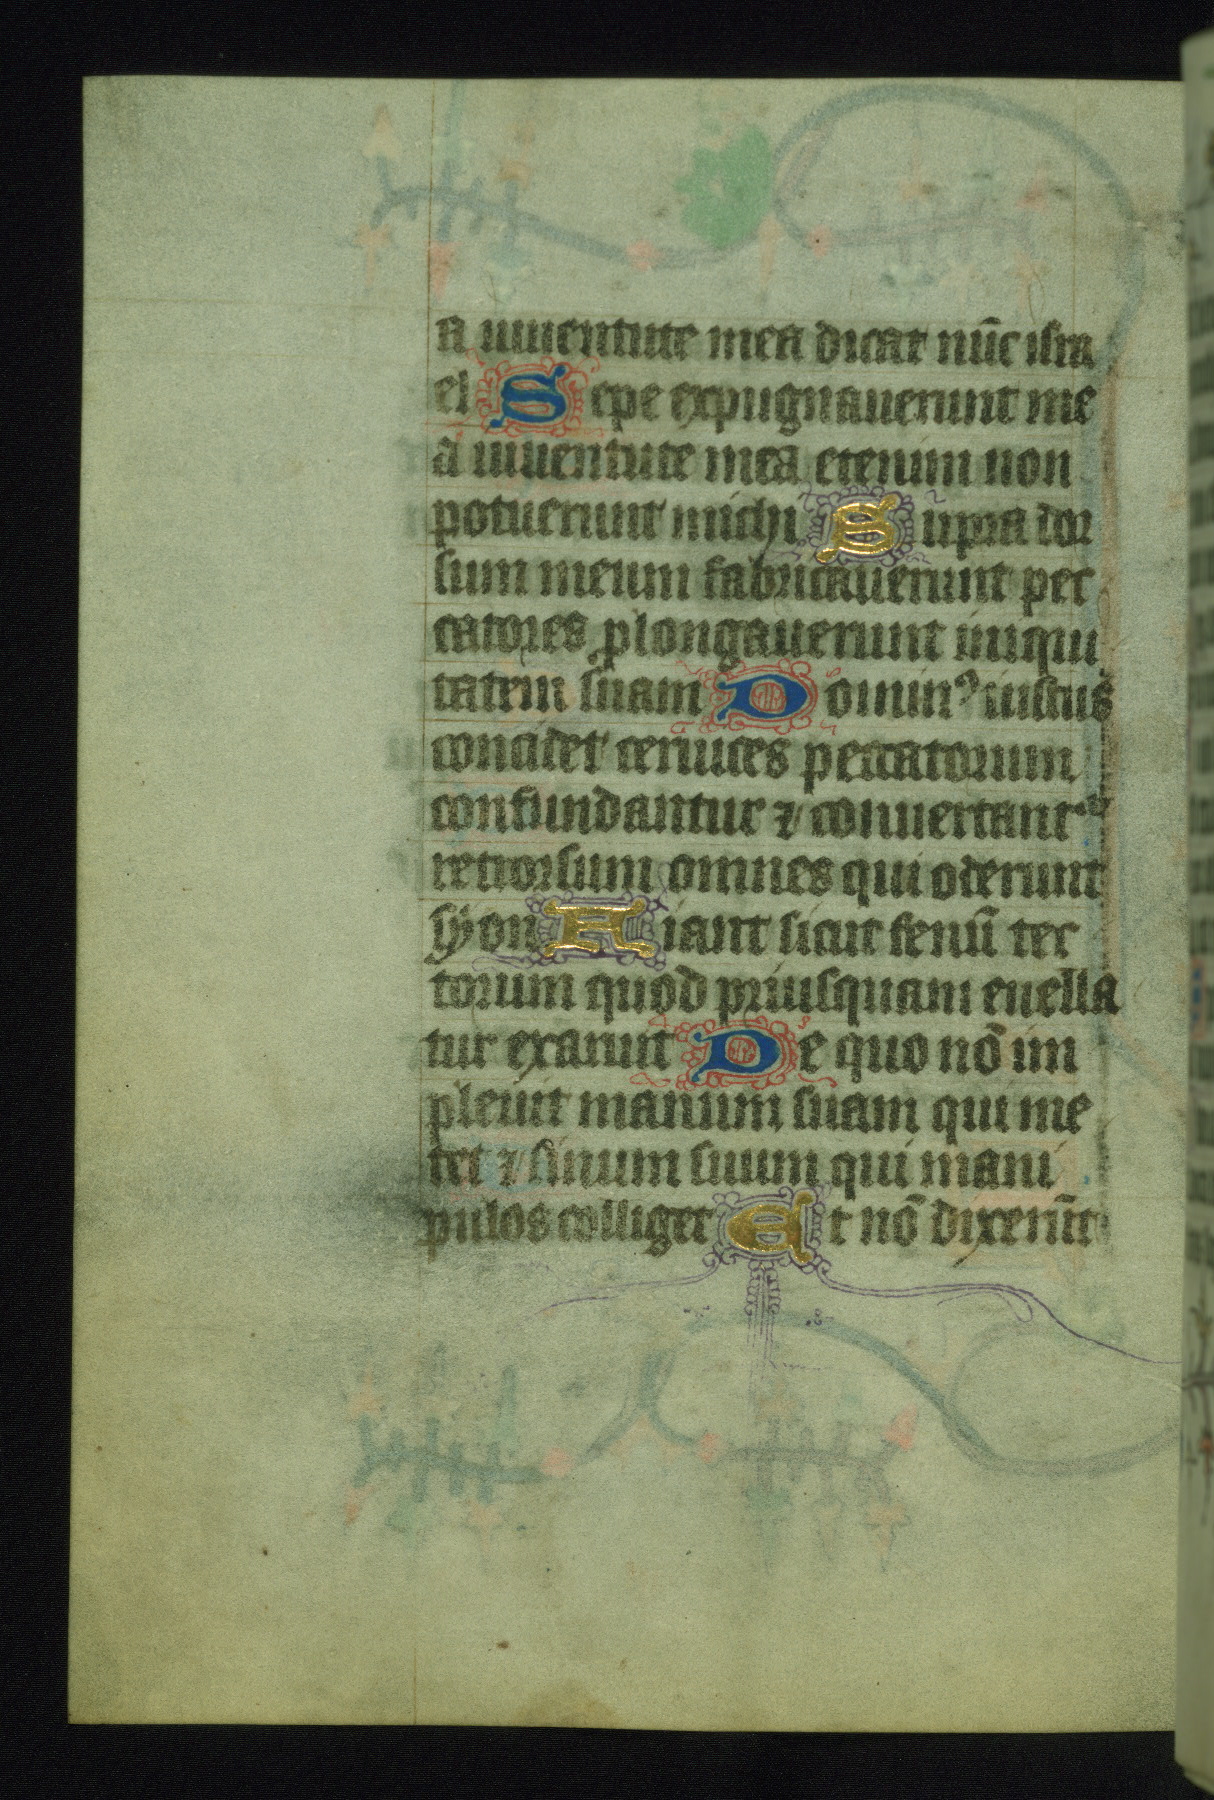 a iuuentute mea dicat nūc isra
el Sepe expugnauerunt me
a iuuentute mea etenim non
potuerunt michi Supra dor
sum meum fabricauerunt pec
catores ꝓlongauerunt iniqui
tatem suam Dominꝰ iustus
concidet ceruices peccatorum
confundantur ⁊ conuertantᵘʳ
retrorsum omnes qui oderunt
syon Fiant sicut fenū tec
torum quod priusquam euella
tur exaruit De quo nō im
pleuit manum suam qui me
tet ⁊ sinum suum qui mani
pulos colliget Et nō dixerūt